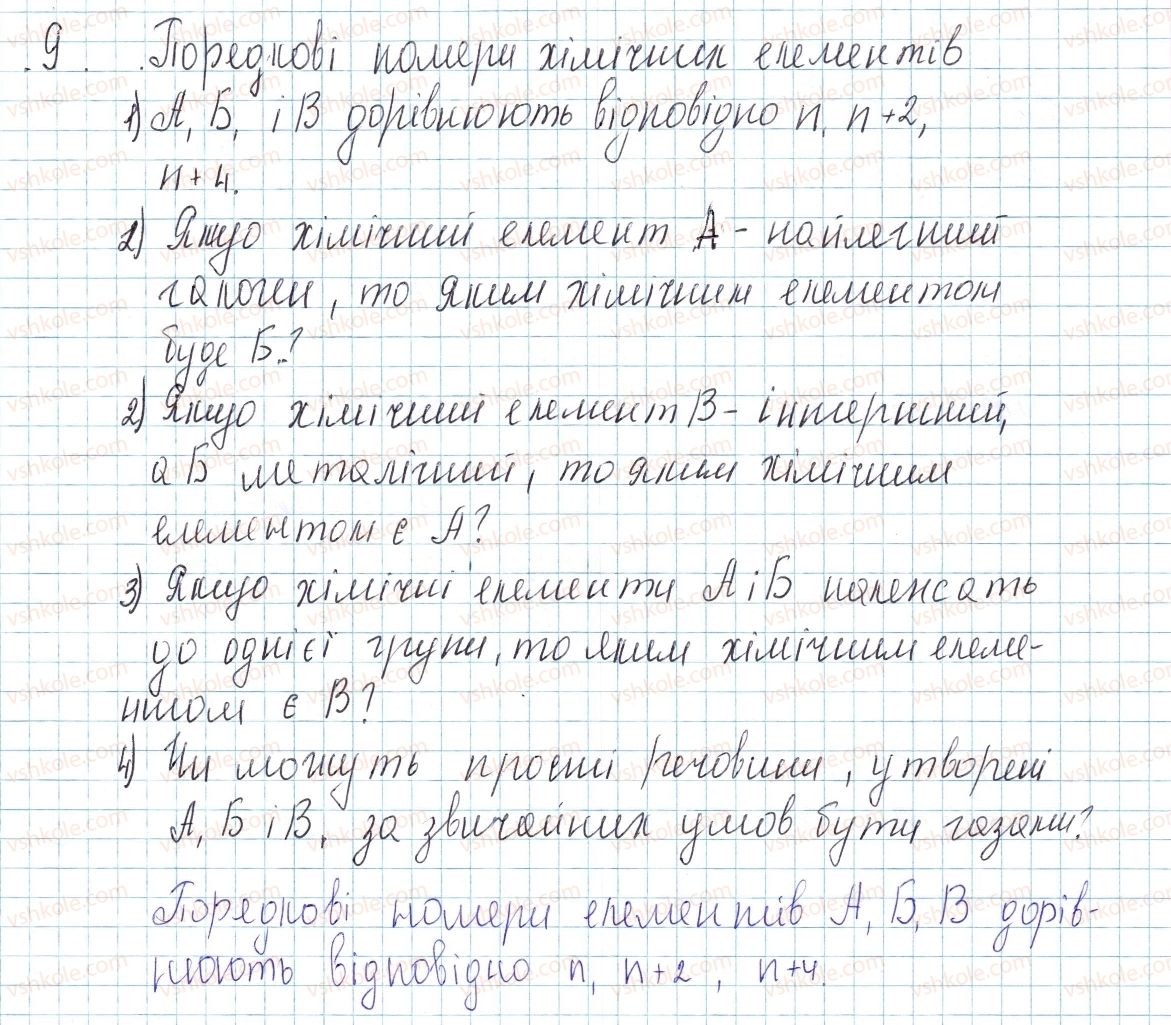 9. Порядкові номери хімічних елементів
1) А, Б, і В дорівнюють відповідно n, n+2,
n+4.
1) Якщо хімічний елемент А - найлегший
галоген, то яким хімічним елементом
буде Б..?
2) Якщо хімічний елемент В - інтертний,
а Б металічний, то яким хімічним
елементом є А?
3) Якщо хімічні елементи А і Б належать
до однієї групи, то яким хімічним елеме-
нтом є В?
4) Чи можуть прості речовини, утворені
А, Б і В, за звичайних умов бути газами?
Порядкові номери елементів А, Б, В дорів-
нюють відповідно n, n+2, n+4.